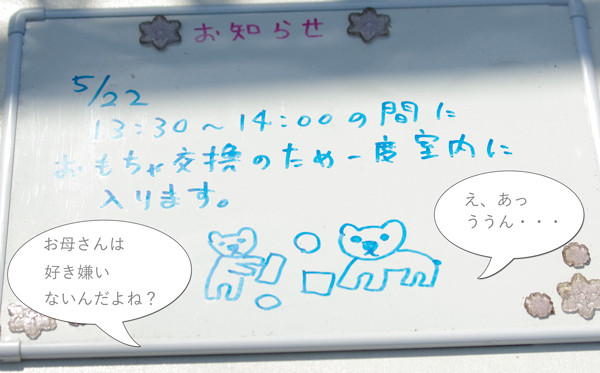 お知らせ
5/22
13:30～14:00の間に
おもちゃ交換のため一度室内に
入ります。
え、あっ
ううん・・・
お母さんは
好き嫌い
ないんだよね？